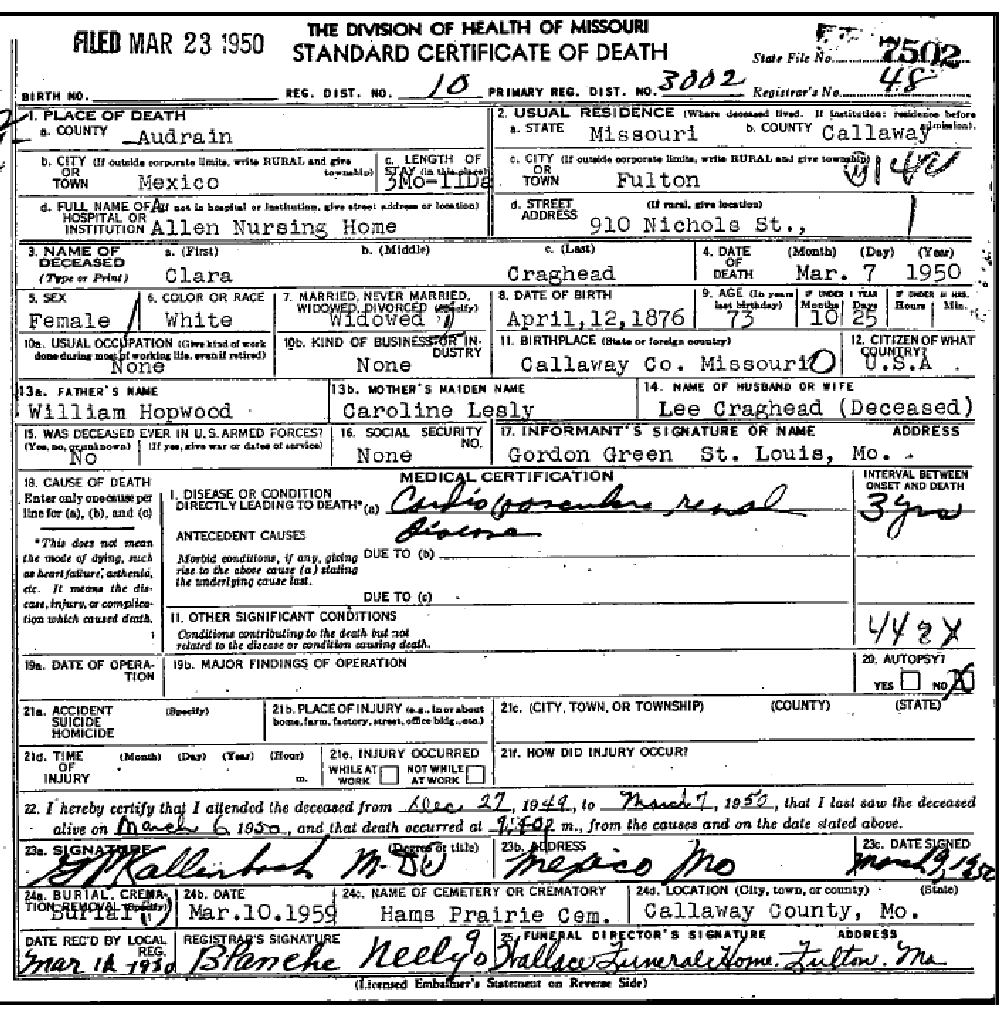 FILED MAR 23 1950
THE DIVISION OF HEALTH OF MISSOURI
STANDARD CERTIFICATE OF DEATH
State File No. 7502
BIRTH NO. REG. DIST. NO. 10 PRIMARY REG. DIST. NO. 3002 Registrar's No. 48
1. PLACE OF DEATH
a. COUNTY Audrain
2. USUAL RESIDENCE (Where deceased lived. If institution: residence before admission).
a. STATE Missouri b. COUNTY Callaway
b. CITY (If outside corporate limits, write RURAL and give township) OR TOWN Mexico
c. LENGTH OF STAY (in this place) 3Mo-11Da
c. CITY (If outside corporate limits, write RURAL and give township) OR TOWN Fulton
d. FULL NAME OF (If not in hospital or institution, give street address or location) HOSPITAL OR INSTITUTION Allen Nursing Home
d. STREET ADDRESS (If rural, give location) 910 Nichols St.,
3. NAME OF DECEASED (Type or Print) a. (First) Clara b. (Middle) c. (Last) Craghead
4. DATE OF DEATH (Month) (Day) (Year) Mar. 7 1950
5. SEX Female
6. COLOR OR RACE White
7. MARRIED, NEVER MARRIED, WIDOWED, DIVORCED (Specify) Widowed
8. DATE OF BIRTH April,12,1876
9. AGE (In years last birthday) 73 IF UNDER 1 YEAR Months 10 Days 25 IF UNDER 24 HRS. Hours Min.
10a. USUAL OCCUPATION (Give kind of work done during most of working life, even if retired) None
10b. KIND OF BUSINESS OR INDUSTRY None
11. BIRTHPLACE (State or foreign country) Callaway Co. Missouri
12. CITIZEN OF WHAT COUNTRY? U.S.A
13a. FATHER'S NAME William Hopwood
13b. MOTHER'S MAIDEN NAME Caroline Lesly
14. NAME OF HUSBAND OR WIFE Lee Craghead (Deceased)
15. WAS DECEASED EVER IN U.S. ARMED FORCES? (Yes, no, or unknown) (If yes, give war or dates of service) No
16. SOCIAL SECURITY NO. None
17. INFORMANT'S SIGNATURE OR NAME ADDRESS
Gordon Green St. Louis, Mo.
18. CAUSE OF DEATH
Enter only one cause per line for (a), (b), and (c)
*This does not mean the mode of dying, such as heart failure, asthenia, etc. It means the disease, injury, or complication which caused death.
MEDICAL CERTIFICATION
I. DISEASE OR CONDITION DIRECTLY LEADING TO DEATH* (a) Cardio vascular renal disease
INTERVAL BETWEEN ONSET AND DEATH 3 yrs
ANTECEDENT CAUSES
Morbid conditions, if any, giving rise to the above cause (a) stating the underlying cause last.
DUE TO (b)
DUE TO (c)
II. OTHER SIGNIFICANT CONDITIONS
Conditions contributing to the death but not related to the disease or condition causing death.
442X
19a. DATE OF OPERATION
19b. MAJOR FINDINGS OF OPERATION
20. AUTOPSY? YES NO X
21a. ACCIDENT SUICIDE HOMICIDE (Specify)
21b. PLACE OF INJURY (e.g., in or about home, farm, factory, street, office bldg., etc.)
21c. (CITY, TOWN, OR TOWNSHIP) (COUNTY) (STATE)
21d. TIME OF INJURY (Month) (Day) (Year) (Hour) m.
21e. INJURY OCCURRED WHILE AT WORK NOT WHILE AT WORK
21f. HOW DID INJURY OCCUR?
22. I hereby certify that I attended the deceased from Dec. 27, 1949, to March 7, 1950, that I last saw the deceased
alive on March 6, 1950, and that death occurred at m., from the causes and on the date stated above.
23a. SIGNATURE (Degree or title) Kallenbach M.D.
23b. ADDRESS Mexico Mo
23c. DATE SIGNED March 9, 1950
24a. BURIAL, CREMATION, REMOVAL (Specify) Burial
24b. DATE Mar.10.1959
24c. NAME OF CEMETERY OR CREMATORY Hams Prairie Cem.
24d. LOCATION (City, town, or county) (State) Callaway County, Mo.
DATE REC'D BY LOCAL REG. Mar 1950
REGISTRAR'S SIGNATURE Blanche Neely
25. FUNERAL DIRECTOR'S SIGNATURE ADDRESS
Wallace Funeral Home. Fulton. Mo
(Licensed Embalmer's Statement on Reverse Side)